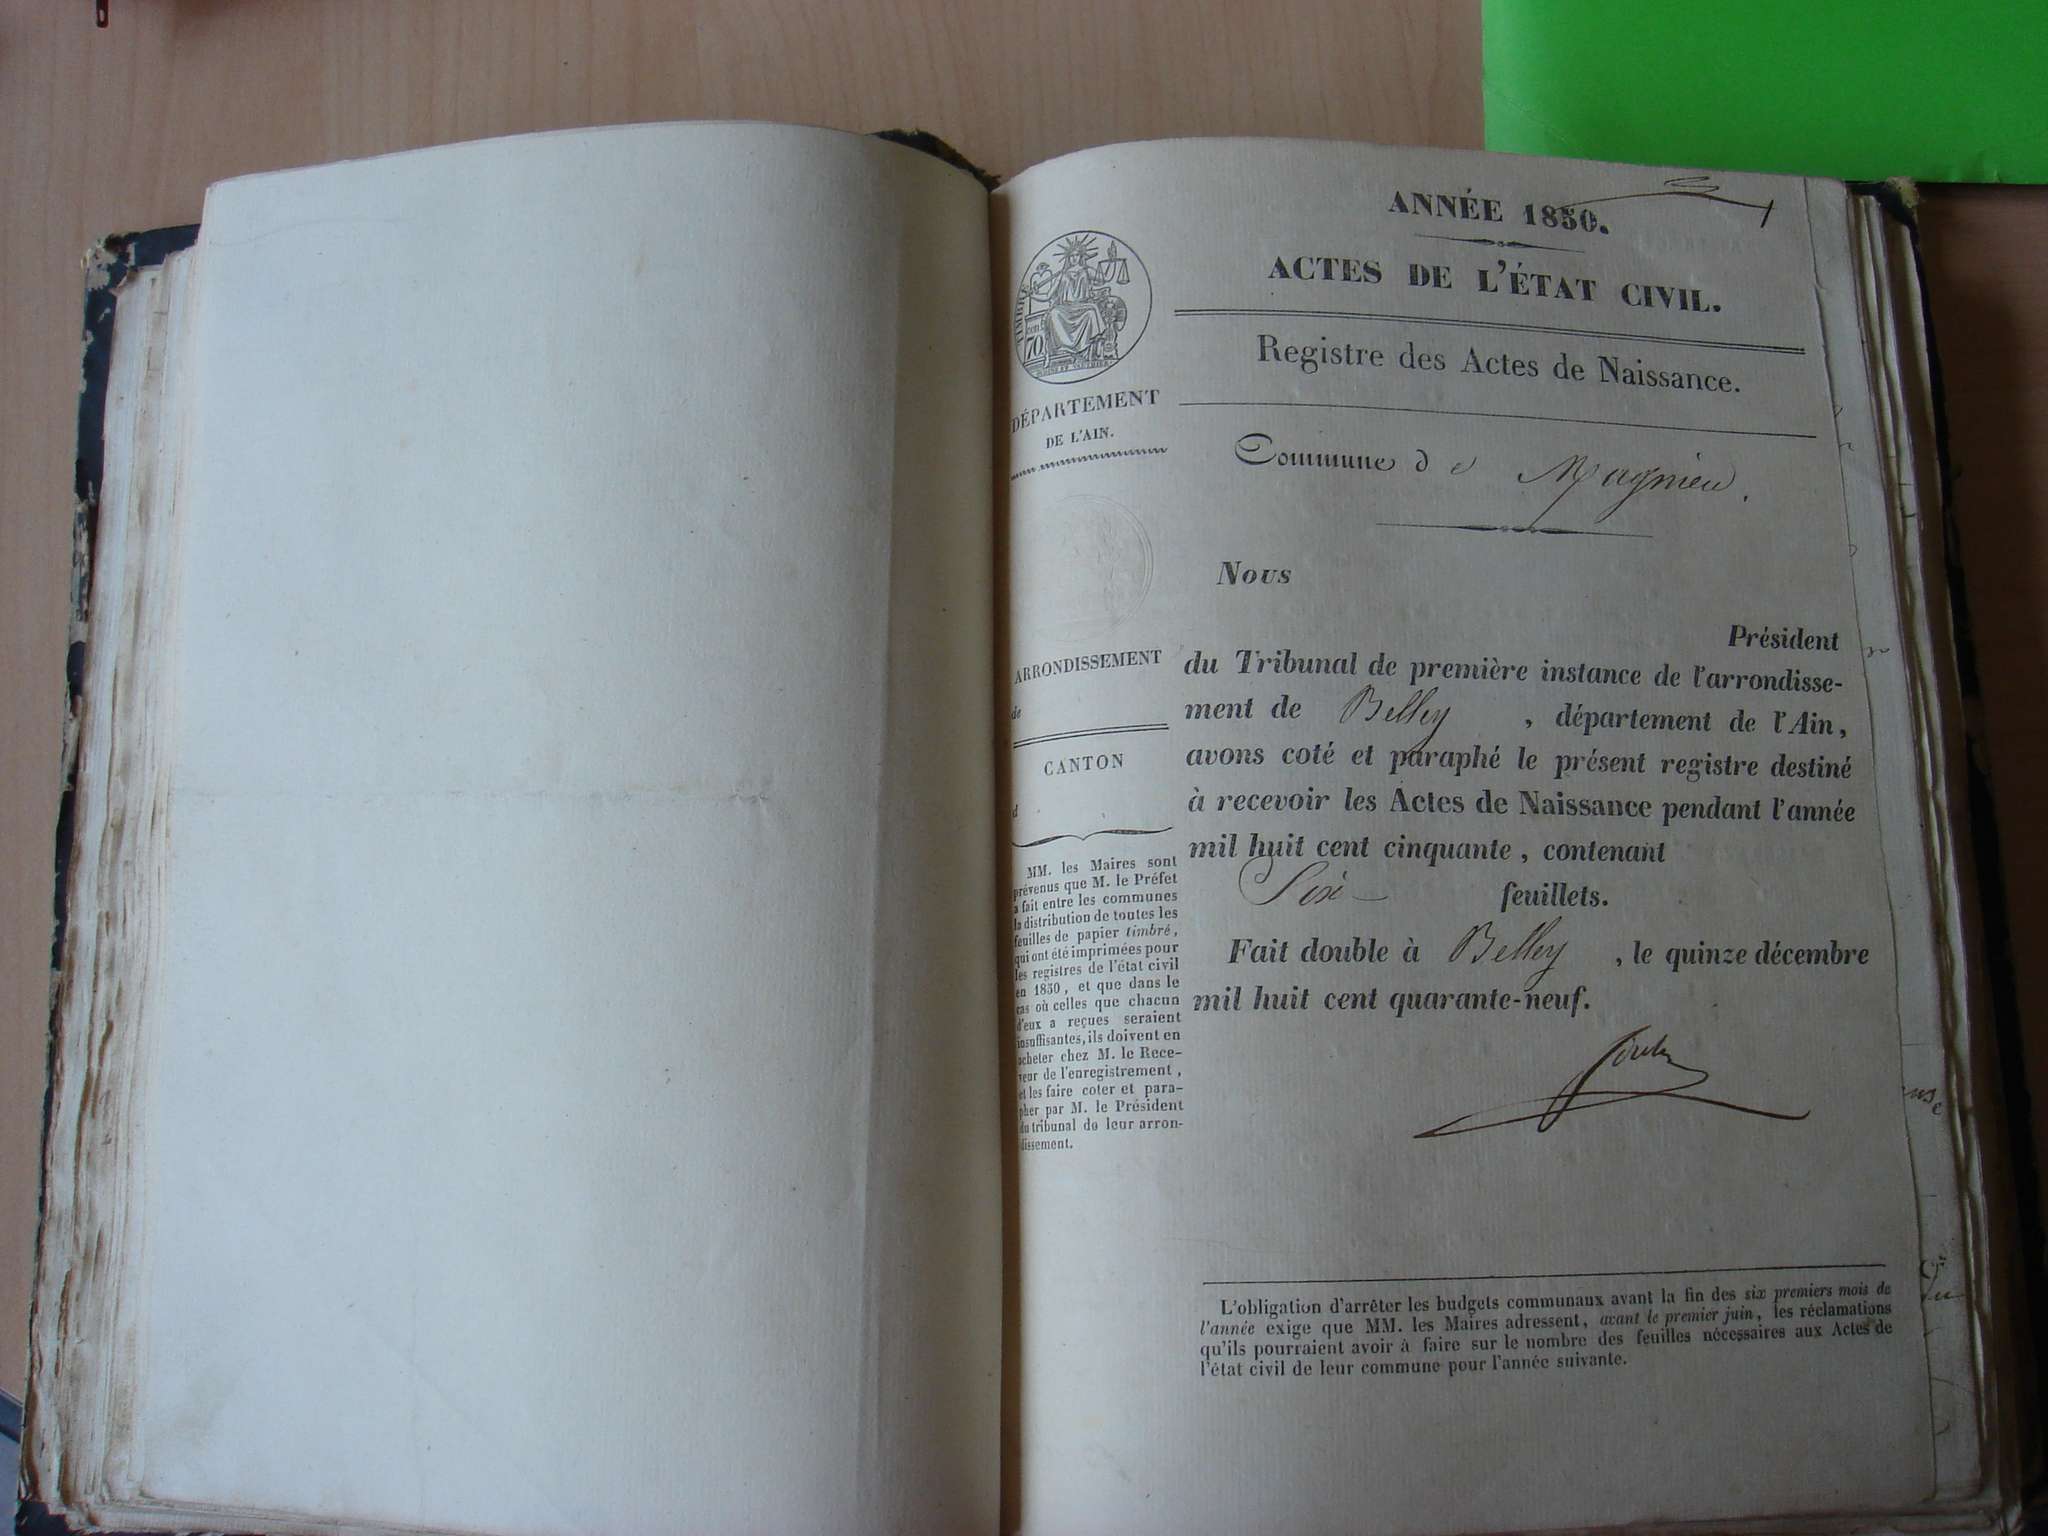 ANNÉE 1850.
ACTES DE L'ÉTAT CIVIL.
Registre des Actes de Naissance.
Commune de Magnieu.
TIMBRE
cen
70
DÉPARTEMENT
DE L'AIN.
ARRONDISSEMENT
de
CANTON
d
MM. les Maires sont
prévenus que M. le Préfet
a fait entre les communes
la distribution de toutes les
feuilles de papier timbré,
qui ont été imprimées pour
les registres de l'état civil
en 1850, et que dans le
cas où celles que chacun
d'eux a reçues seraient
insuffisantes, ils doivent en
acheter chez M. le Rece-
veur de l'enregistrement,
et les faire coter et para-
pher par M. le Président
du tribunal de leur arron-
dissement.
Nous
Président
du Tribunal de première instance de l'arrondisse-
ment de Belley, département de l'Ain,
avons coté et paraphé le présent registre destiné
à recevoir les Actes de Naissance pendant l'année
mil huit cent cinquante, contenant
Six feuillets.
Fait double à Belley, le quinze décembre
mil huit cent quarante-neuf.
L'obligation d'arrêter les budgets communaux avant la fin des six premiers mois de
l'année exige que MM. les Maires adressent, avant le premier juin, les réclamations
qu'ils pourraient avoir à faire sur le nombre des feuilles nécessaires aux Actes de
l'état civil de leur commune pour l'année suivante.